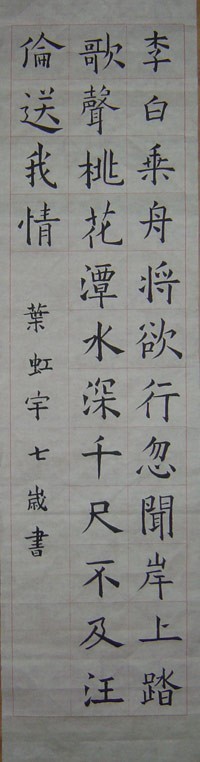 李白乗舟将欲行忽聞岸上踏
歌聲桃花潭水深千尺不及汪
倫送我情
葉虹宇七歳書